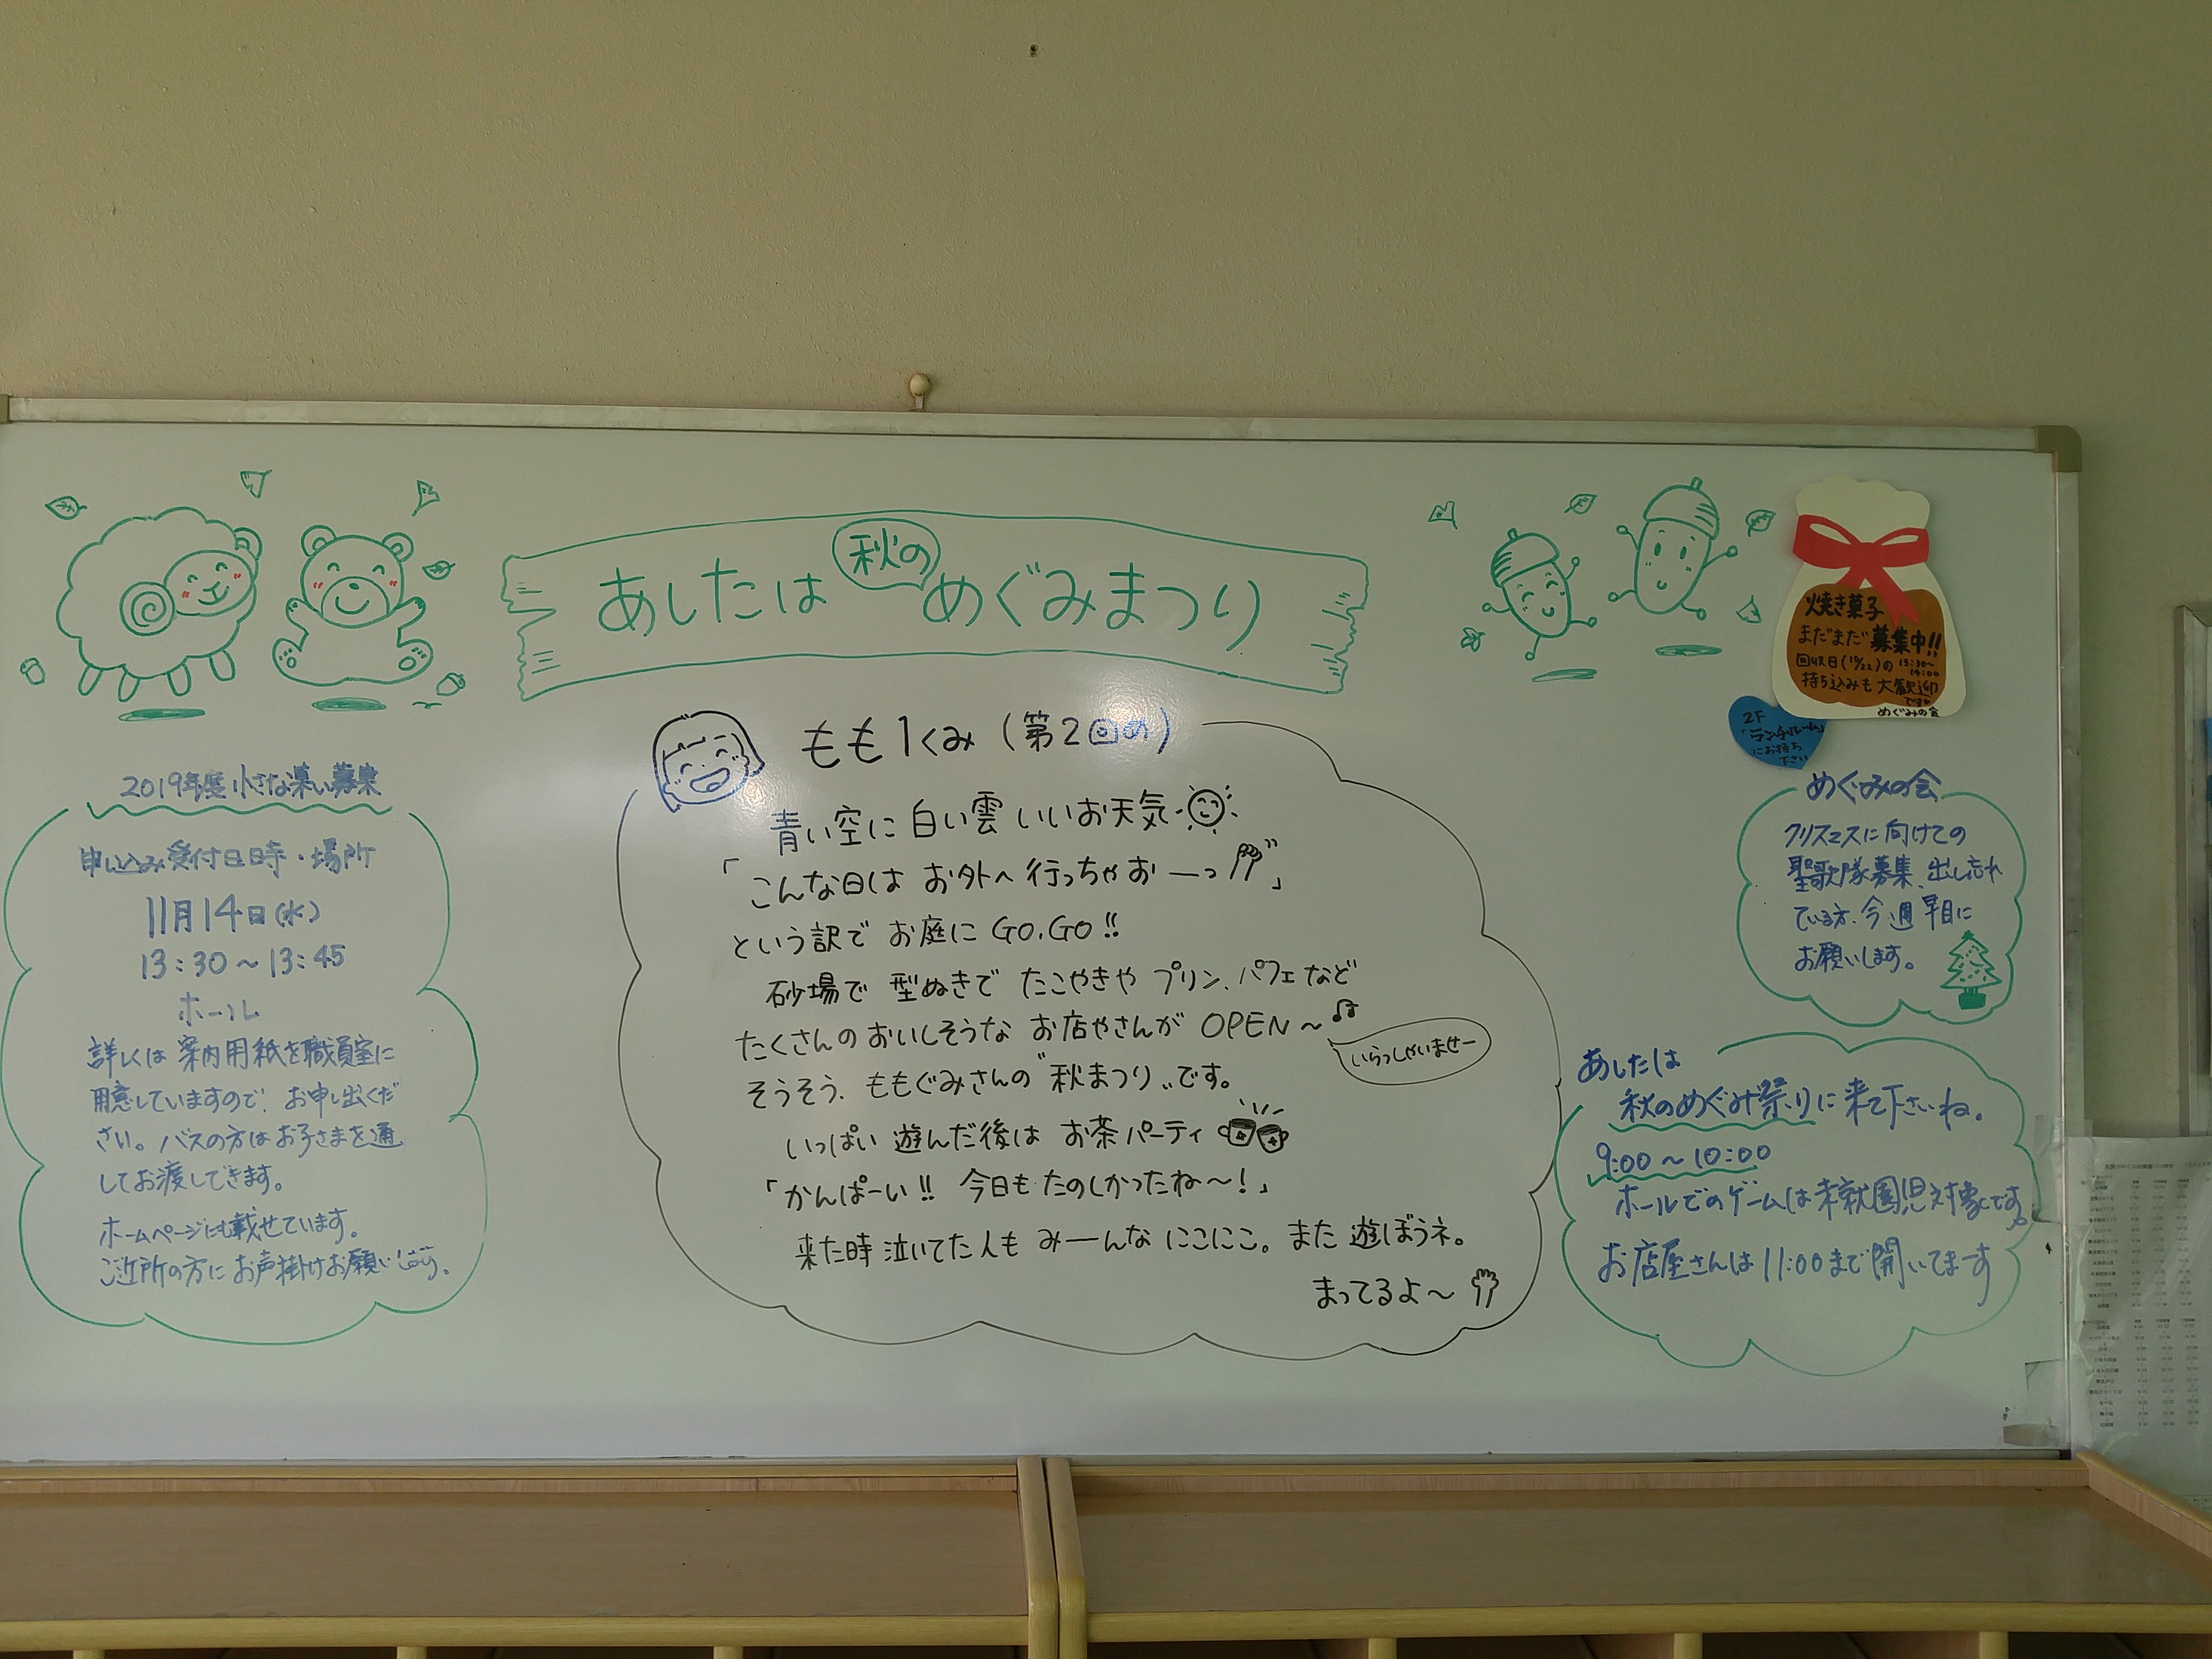 あしたは秋のめぐみまつり
2019年度小さな集い募集
申し込み受付日時・場所
11月14日(水)
13:30～13:45
ホール
詳しくは案内用紙を職員室に
用意していますので、お申し出くだ
さい。バスの方はお子さまを通
してお渡しできます。
ホームページにも載せています。
ご近所の方にお声掛けお願いします。
もも1くみ(第2回め)
青い空に白い雲いいお天気
「こんな日はお外へ行っちゃおーっ」
という訳でお庭にGO.GO!!
砂場で型ぬきでたこやきやプリン、パフェなど
たくさんのおいしそうなお店やさんがOPEN～♫
いらっしゃいませー
そうそう、ももぐみさんの〝秋まつり〟です。
いっぱい遊んだ後はお茶パーティ
「かんぱーい!! 今日もたのしかったね～!」
来た時泣いてた人もみーんなにこにこ。また遊ぼうネ。
まってるよ～
焼き菓子
まだまだ募集中!!
回収日(10/22)の13:30～
14:00
持ち込みも大歓迎
です
めぐみの会
2F
「ランチルーム」
にお持ち
下さい
めぐみの会
クリスマスに向けての
聖歌隊募集、出し忘れ
ている方、今週早目に
お願いします。
あしたは
秋のめぐみ祭りに来て下さいね。
9:00～10:00
ホールでのゲームは未就園児対象です。
お店屋さんは11:00まで開いてまーす